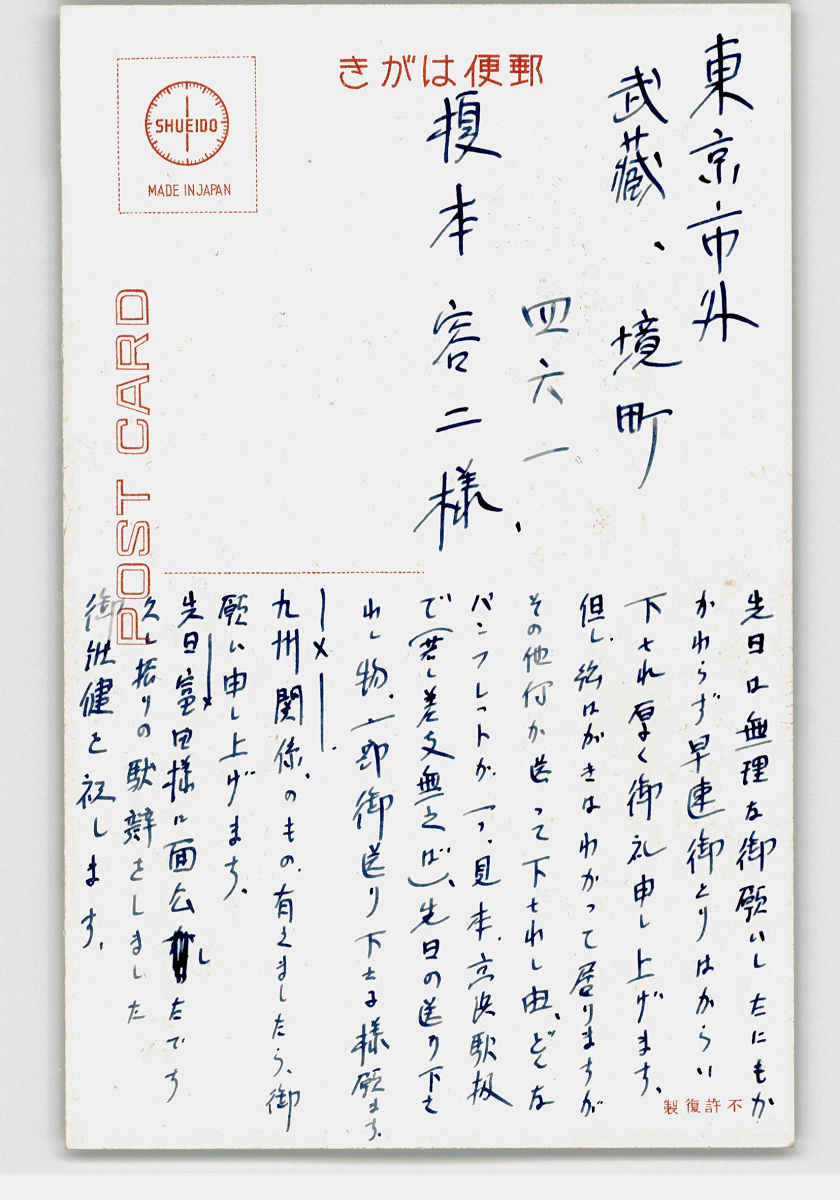 郵便はがき
SHUEIDO
MADE IN JAPAN
POST CARD
東京市外
武蔵、境町
四六一
榎本容二様、
先日は無理な御願いしたにもか
かわらず早速御とりはからい
下され厚く御礼申し上げます、
但し、絵はがきはわかって居りますが
その他何か送って下されし由、どんな
パンフレットが、一つ、見本、京浜駅扱
で(若し差支無之ば)、先日の送り下さ
れし物、一部御送り下さる様願ます、
九州関係、のもの、有之ましたら、御
願い申し上げます、
先日富田様に面会したです
久し振りの駄辯をしました
御壮健を祝します、
不許復製